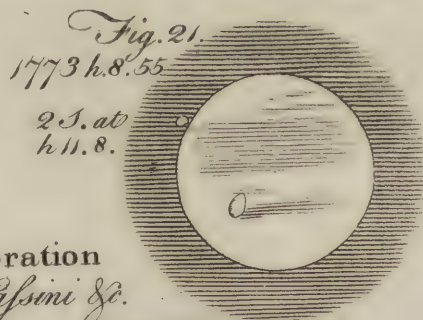 Fig. 21.
1773 h. 8. 55
2 S. at
h 11. 8.
ration
ſsini &c.